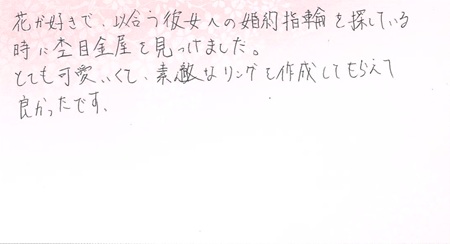 花が好きで、似合う彼女への婚約指輪を探している
時に杢目金屋を見つけました。
とても可愛いくて、素敵なリングを作成してもらえて
良かったです。